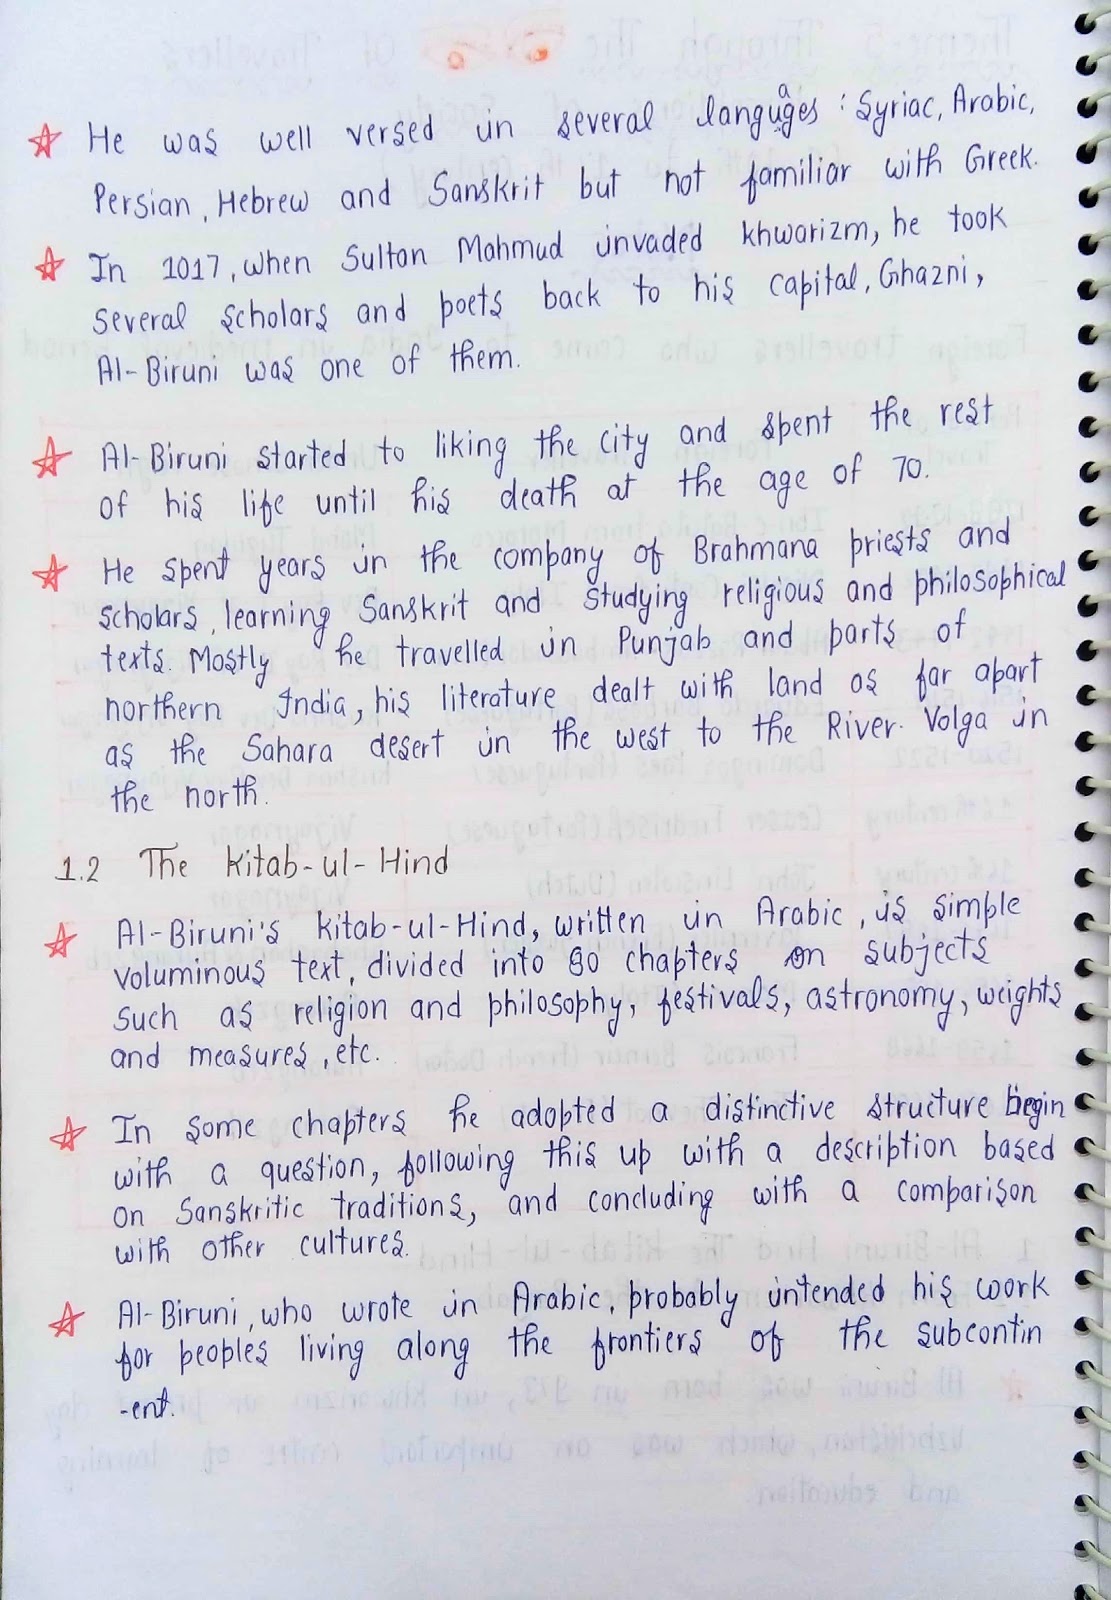 He was well versed in several languages : Syriac, Arabic,
Persian, Hebrew and Sanskrit but not familiar with Greek.
In 1017, when Sultan Mahmud invaded khwarizm, he took
several scholars and poets back to his capital, Ghazni,
Al-Biruni was one of them.
Al-Biruni started to liking the city and spent the rest
of his life until his death at the age of 70.
He spent years in the company of Brahmana priests and
scholars, learning Sanskrit and studying religious and philosophical
texts. Mostly he travelled in Punjab and parts of
northern India, his literature dealt with land as far apart
as the Sahara desert in the west to the River Volga in
the north.
1.2 The Kitab-ul-Hind
Al-Biruni's kitab-ul-Hind, written in Arabic, is simple
voluminous text, divided into 80 chapters on subjects
such as religion and philosophy, festivals, astronomy, weights
and measures, etc.
In some chapters he adopted a distinctive structure begin
with a question, following this up with a description based
on Sanskritic traditions, and concluding with a comparison
with other cultures.
Al-Biruni, who wrote in Arabic, probably intended his work
for peoples living along the frontiers of the subcontin
-ent.